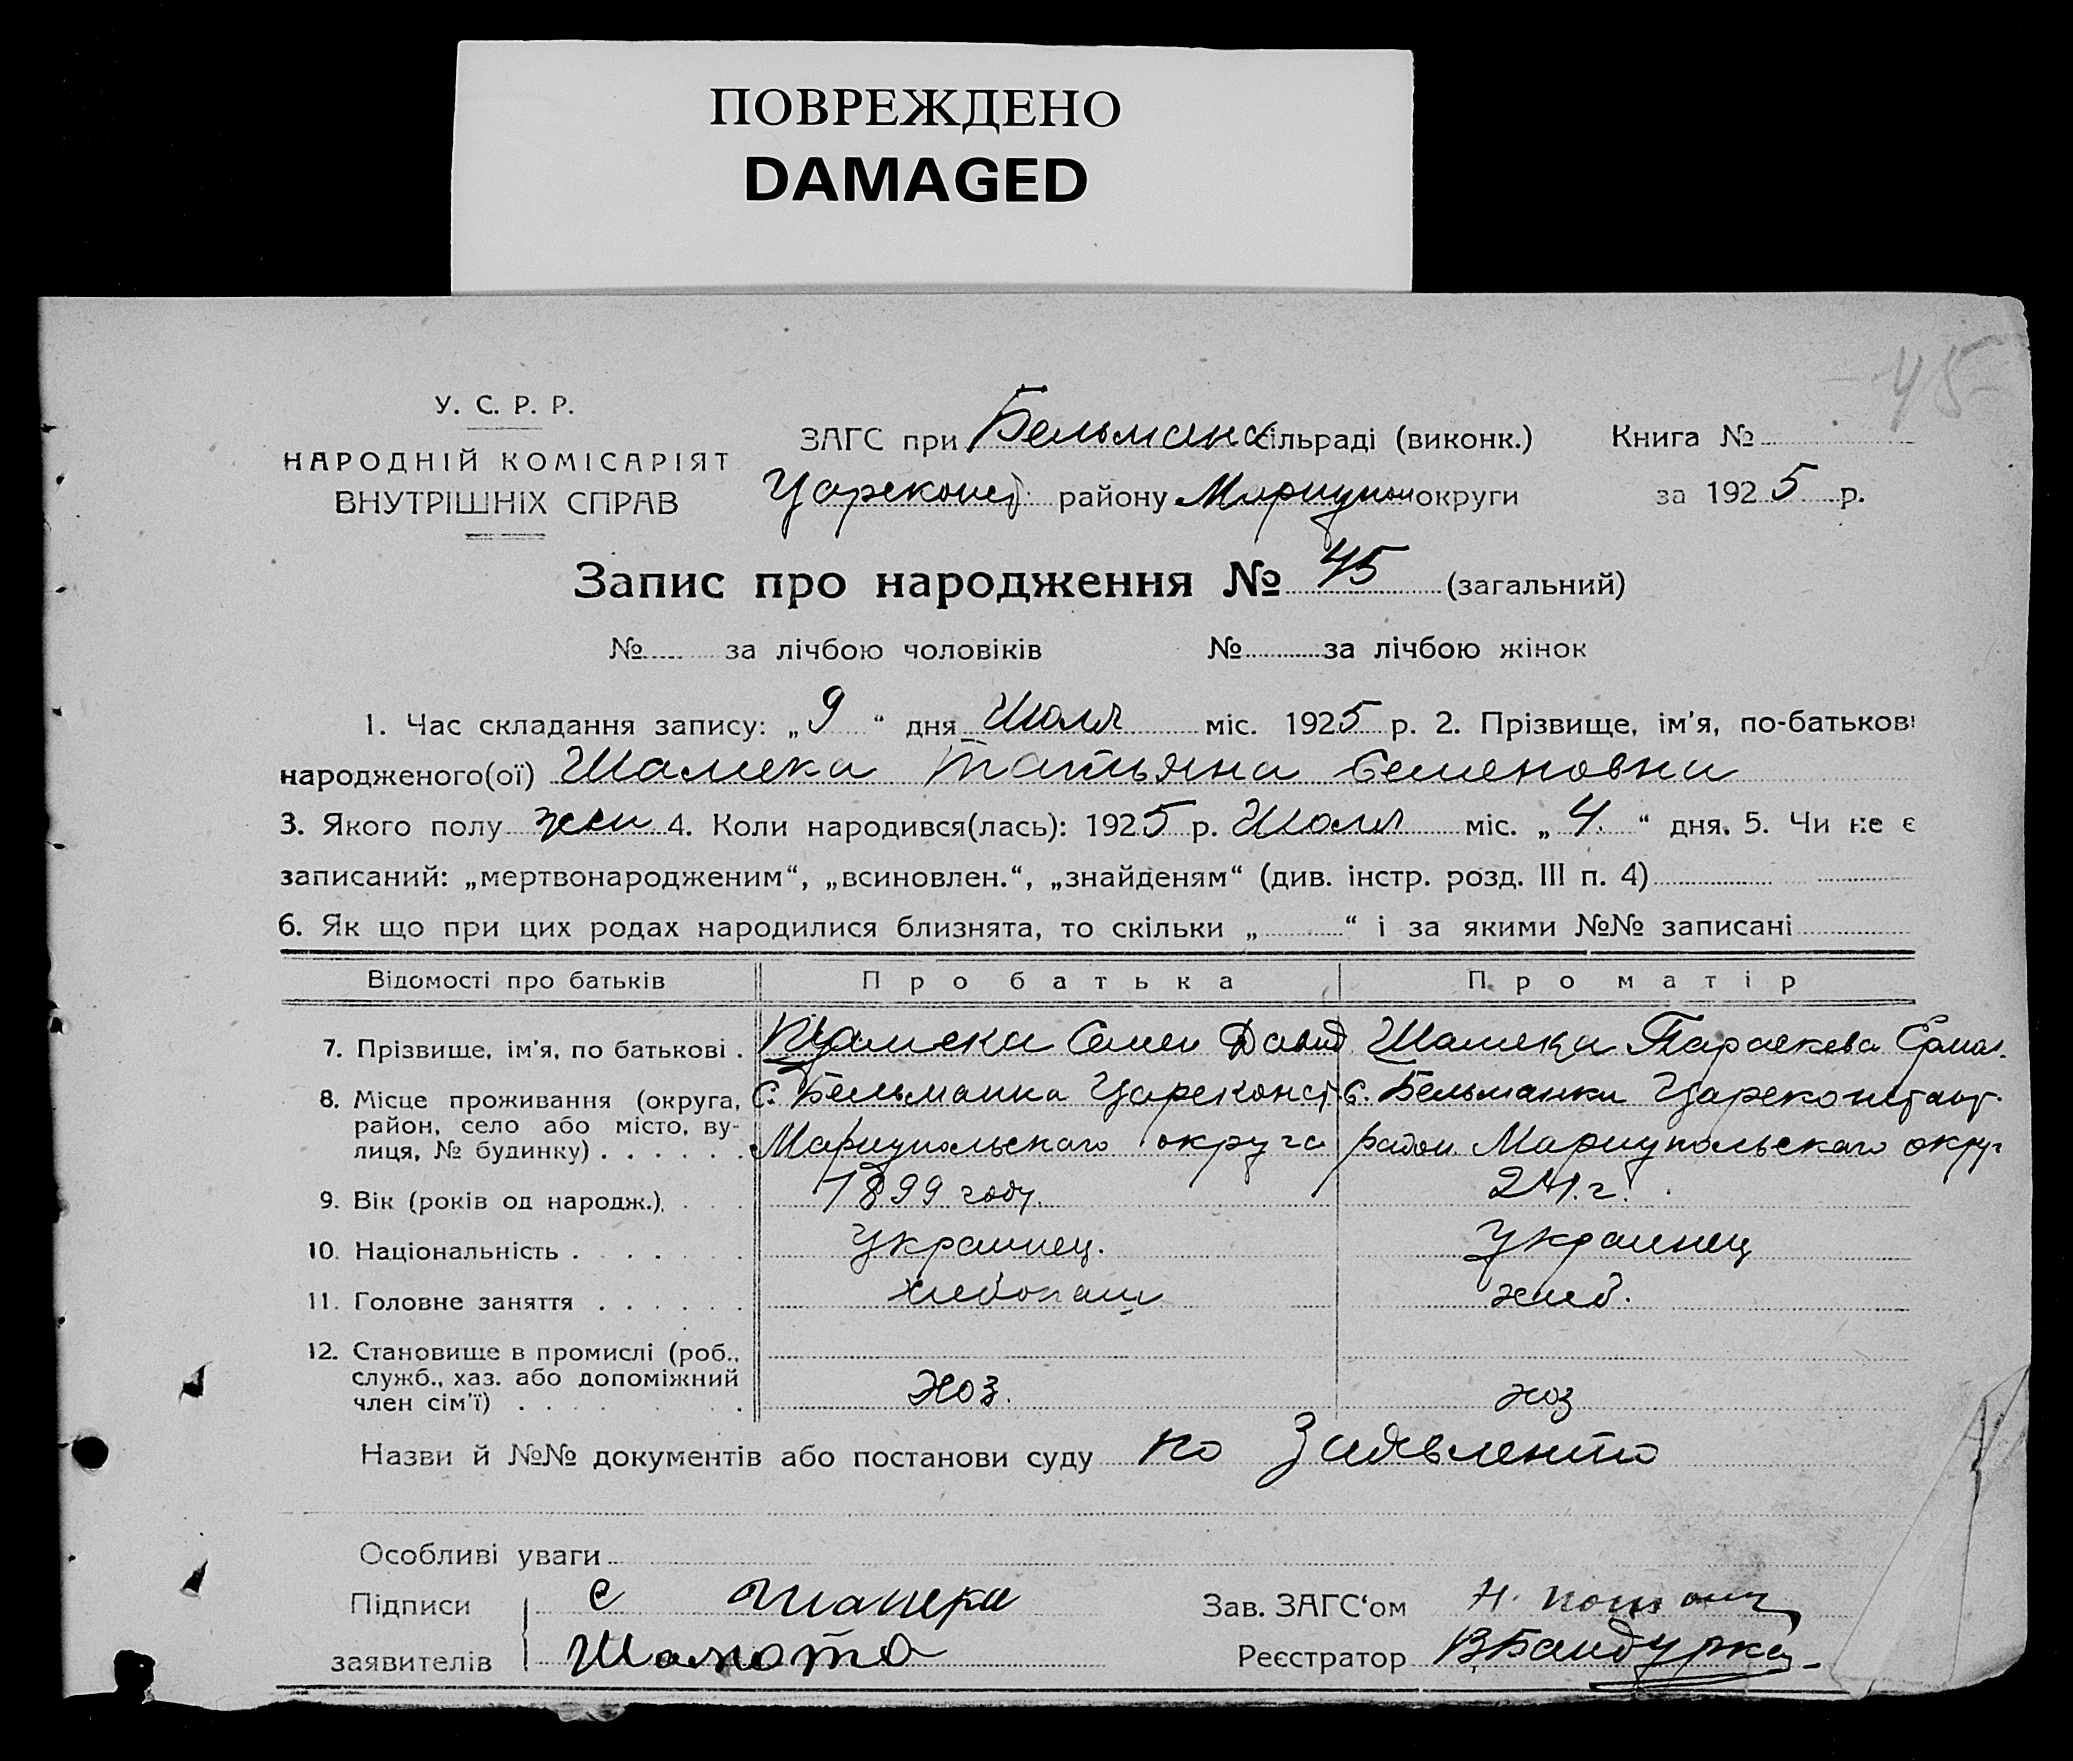 ПОВРЕЖДЕНО
DAMAGED
45
У. С. Р. Р.
НАРОДНІЙ КОМІСАРІЯТ
ВНУТРІШНІХ СПРАВ
ЗАГС при Бельманк сільраді (виконк.) Книга №
Цареконст. району Мариупол округи за 1925 р.
Запис про народження № 45 (загальний)
№ за лічбою чоловіків № за лічбою жінок
1. Час складання запису: „9“ дня Июля міс. 1925 р. 2. Прізвище, ім'я, по-батькові
народженого(ої) Шамека Татьяна Семеновна
3. Якого полу жен 4. Коли народився(лась): 1925 р. Июля міс. „4.“ дня. 5. Чи не є
записаний: „мертвонародженим“, „всиновлен.“, „знайденям“ (див. інстр. розд. III п. 4)
6. Як що при цих родах народилися близнята, то скільки „ “ і за якими №№ записані
Відомості про батьків Про батька Про матір
7. Прізвище, ім'я, по батькові . Шамека Семен Давид Шамека Параскева Ермол.
8. Місце проживання (округа, С. Бельманка Цареконст. С. Бельманки Цареконстант.
район, село або місто, ву-
лиця, № будинку) . . . . . . Мариупольскаго округа район. Мариупольскаго округ
9. Вік (років од народж.) . . . 1899 году. 24 г.
10. Національність . . . . . Украинец. Украинец
11. Головне заняття . . . . . . хлебопаш хлеб.
12. Становище в промислі (роб.,
служб., хаз. або допоміжний
член сім'ї) . . . . . . хоз. хоз
Назви й №№ документів або постанови суду по Заявлению
Особливі уваги
Підписи С Шамека Зав. ЗАГС'ом Н.
заявителів Реєстратор В Бандурка